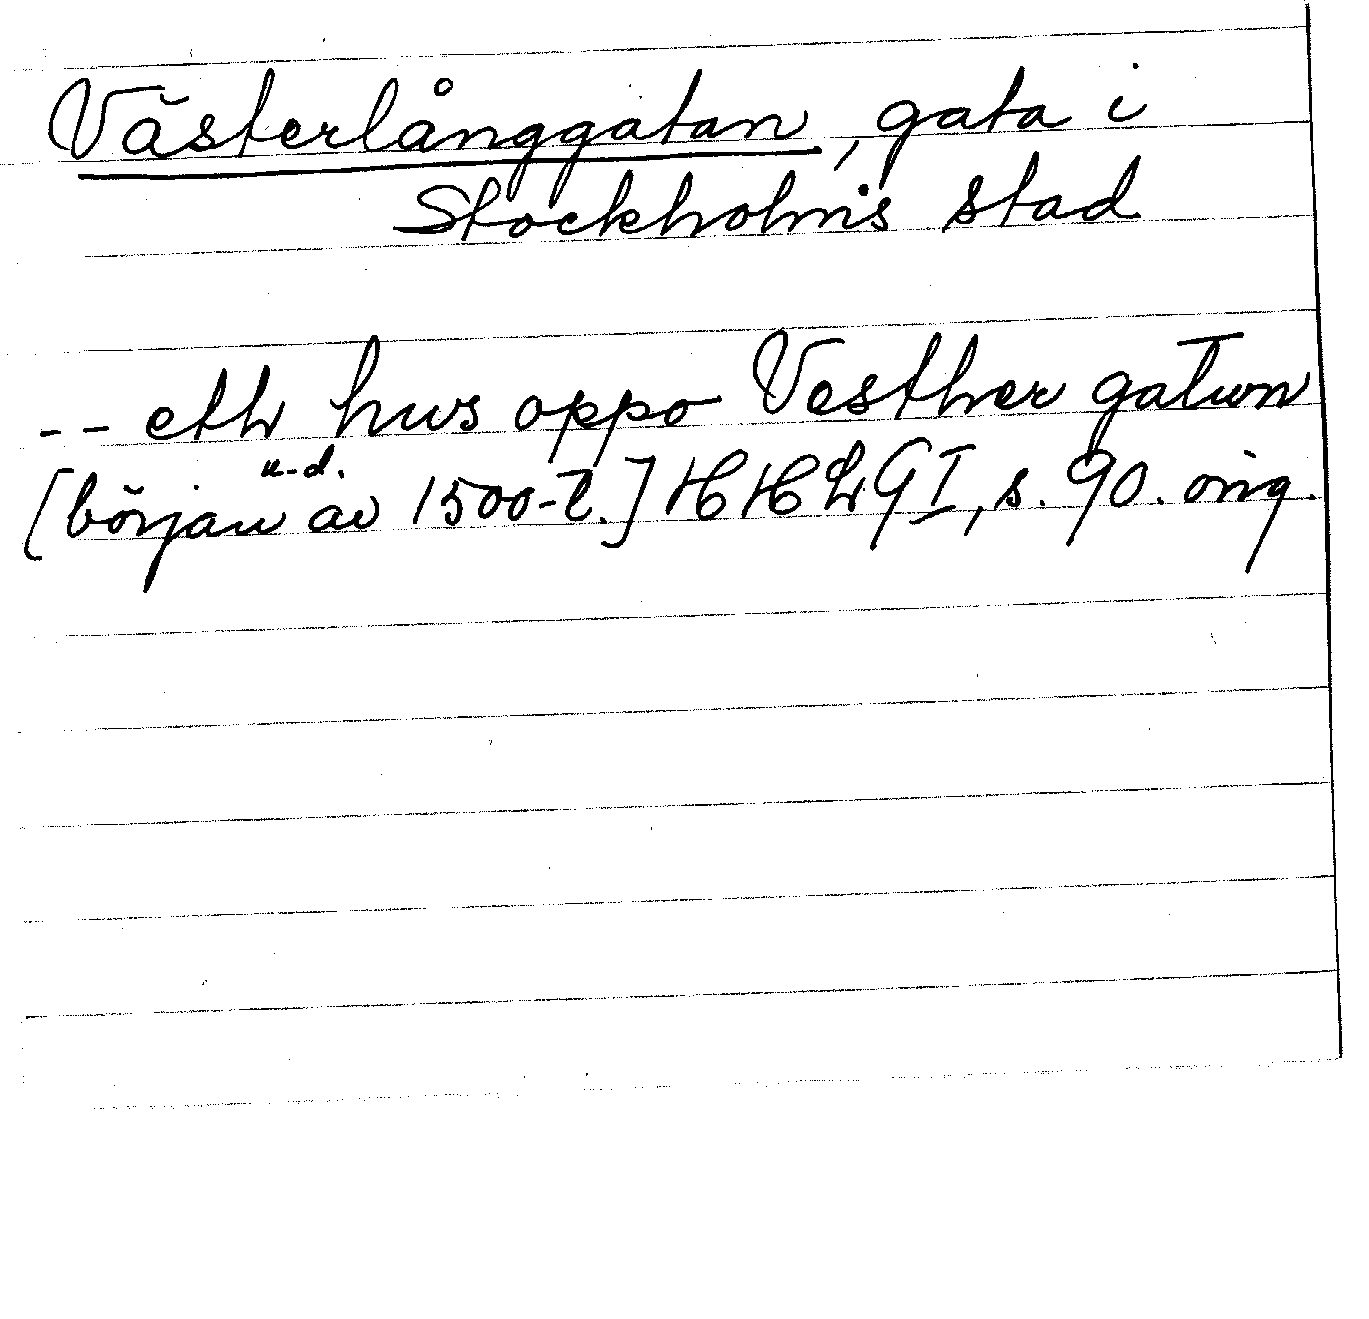 Västerlånggatan, gata i
Stockholms stad
-- eth hus oppo Vesther gatun
u-d.
[början av 1500-t.] HHLGI, s. 90. orig.